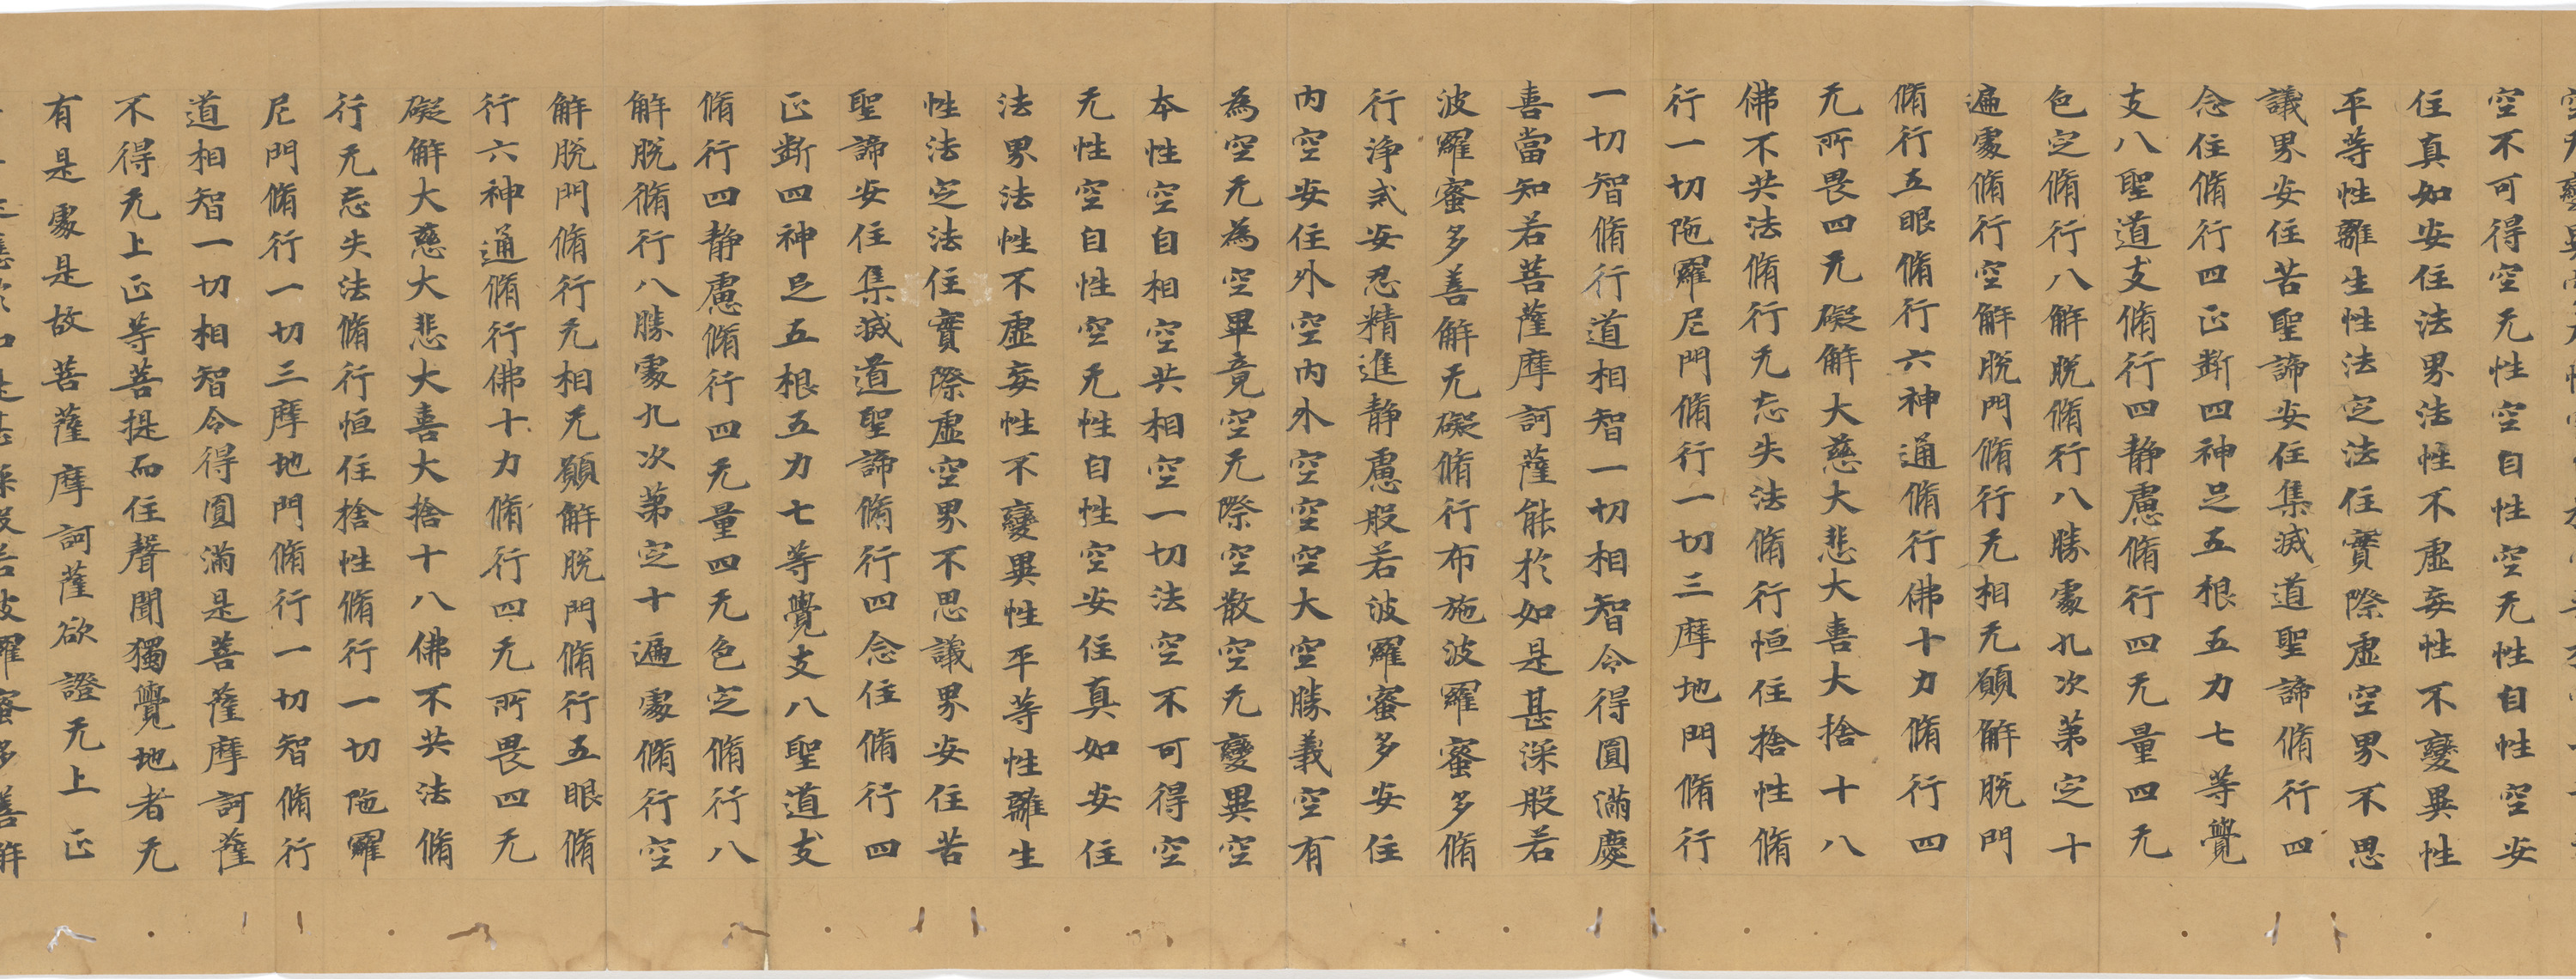 空不可得空无性空自性空无性自性空安
住真如安住法界法性不虛妄性不變異性
平等性離生性法定法住實際虛空界不思
議界安住苦聖諦安住集滅道聖諦脩行四
念住脩行四正斷四神足五根五力七等覺
支八聖道支脩行四靜慮脩行四无量四无
色定脩行八解脫脩行八勝處九次第定十
遍處脩行空解脫門脩行无相无願解脫門
脩行五眼脩行六神通脩行佛十力脩行四
无所畏四无礙解大慈大悲大喜大捨十八
佛不共法脩行无忘失法脩行恒住捨性脩
行一切陁羅尼門脩行一切三摩地門脩行
一切智脩行道相智一切相智令得圓滿慶
喜當知若菩薩摩訶薩能於如是甚深般若
波羅蜜多善解无礙脩行布施波羅蜜多脩
行淨戒安忍精進靜慮般若波羅蜜多安住
內空安住外空內外空空空大空勝義空有
為空无為空畢竟空无際空散空无變異空
本性空自相空共相空一切法空不可得空
无性空自性空无性自性空安住真如安住
法界法性不虛妄性不變異性平等性離生
性法定法住實際虛空界不思議界安住苦
聖諦安住集滅道聖諦脩行四念住脩行四
正斷四神足五根五力七等覺支八聖道支
脩行四靜慮脩行四无量四无色定脩行八
解脫脩行八勝處九次第定十遍處脩行空
解脫門脩行无相无願解脫門脩行五眼脩
行六神通脩行佛十力脩行四无所畏四无
礙解大慈大悲大喜大捨十八佛不共法脩
行无忘失法脩行恒住捨性脩行一切陁羅
尼門脩行一切三摩地門脩行一切智脩行
道相智一切相智令得圓滿是菩薩摩訶薩
不得无上正等菩提而住聲聞獨覺地者无
有是處是故菩薩摩訶薩欲證无上正